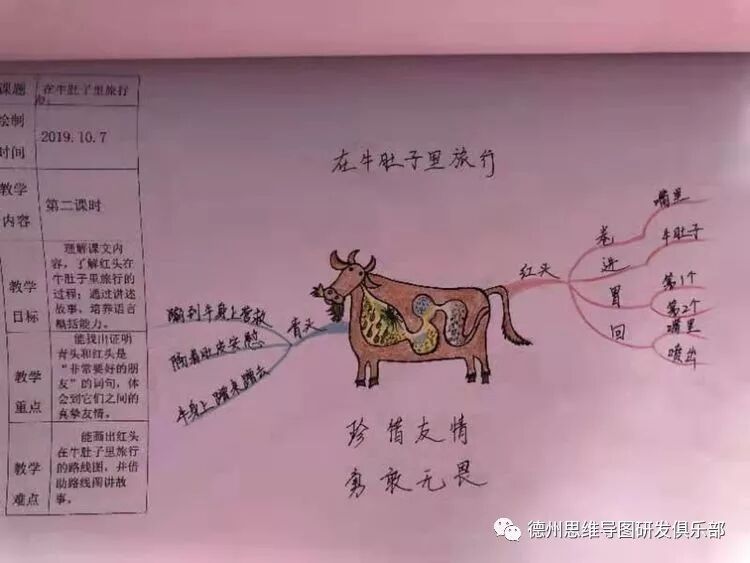 课题
在牛肚子里旅行
绘制
时间
2019.10.7
教学
内容
第二课时
教学
目标
理解课文内
容，了解红头在
牛肚子里旅行的
过程；通过讲述
故事，培养语言
概括能力。
教学
重点
能找出证明
青头和红头是
“非常要好的朋
友”的词句，体
会到它们之间的
真挚友情。
教学
难点
能画出红头
在牛肚子里旅行
的路线图，并借
助路线图讲故
事。
在牛肚子里旅行
青头
蹦到牛身上营救
隔着肚皮安慰
牛身上蹦来蹦去
红头
卷
嘴里
进
牛肚子
胃
第1个
第2个
回
嘴里
喷出
珍惜友情
勇敢无畏
德州思维导图研发俱乐部